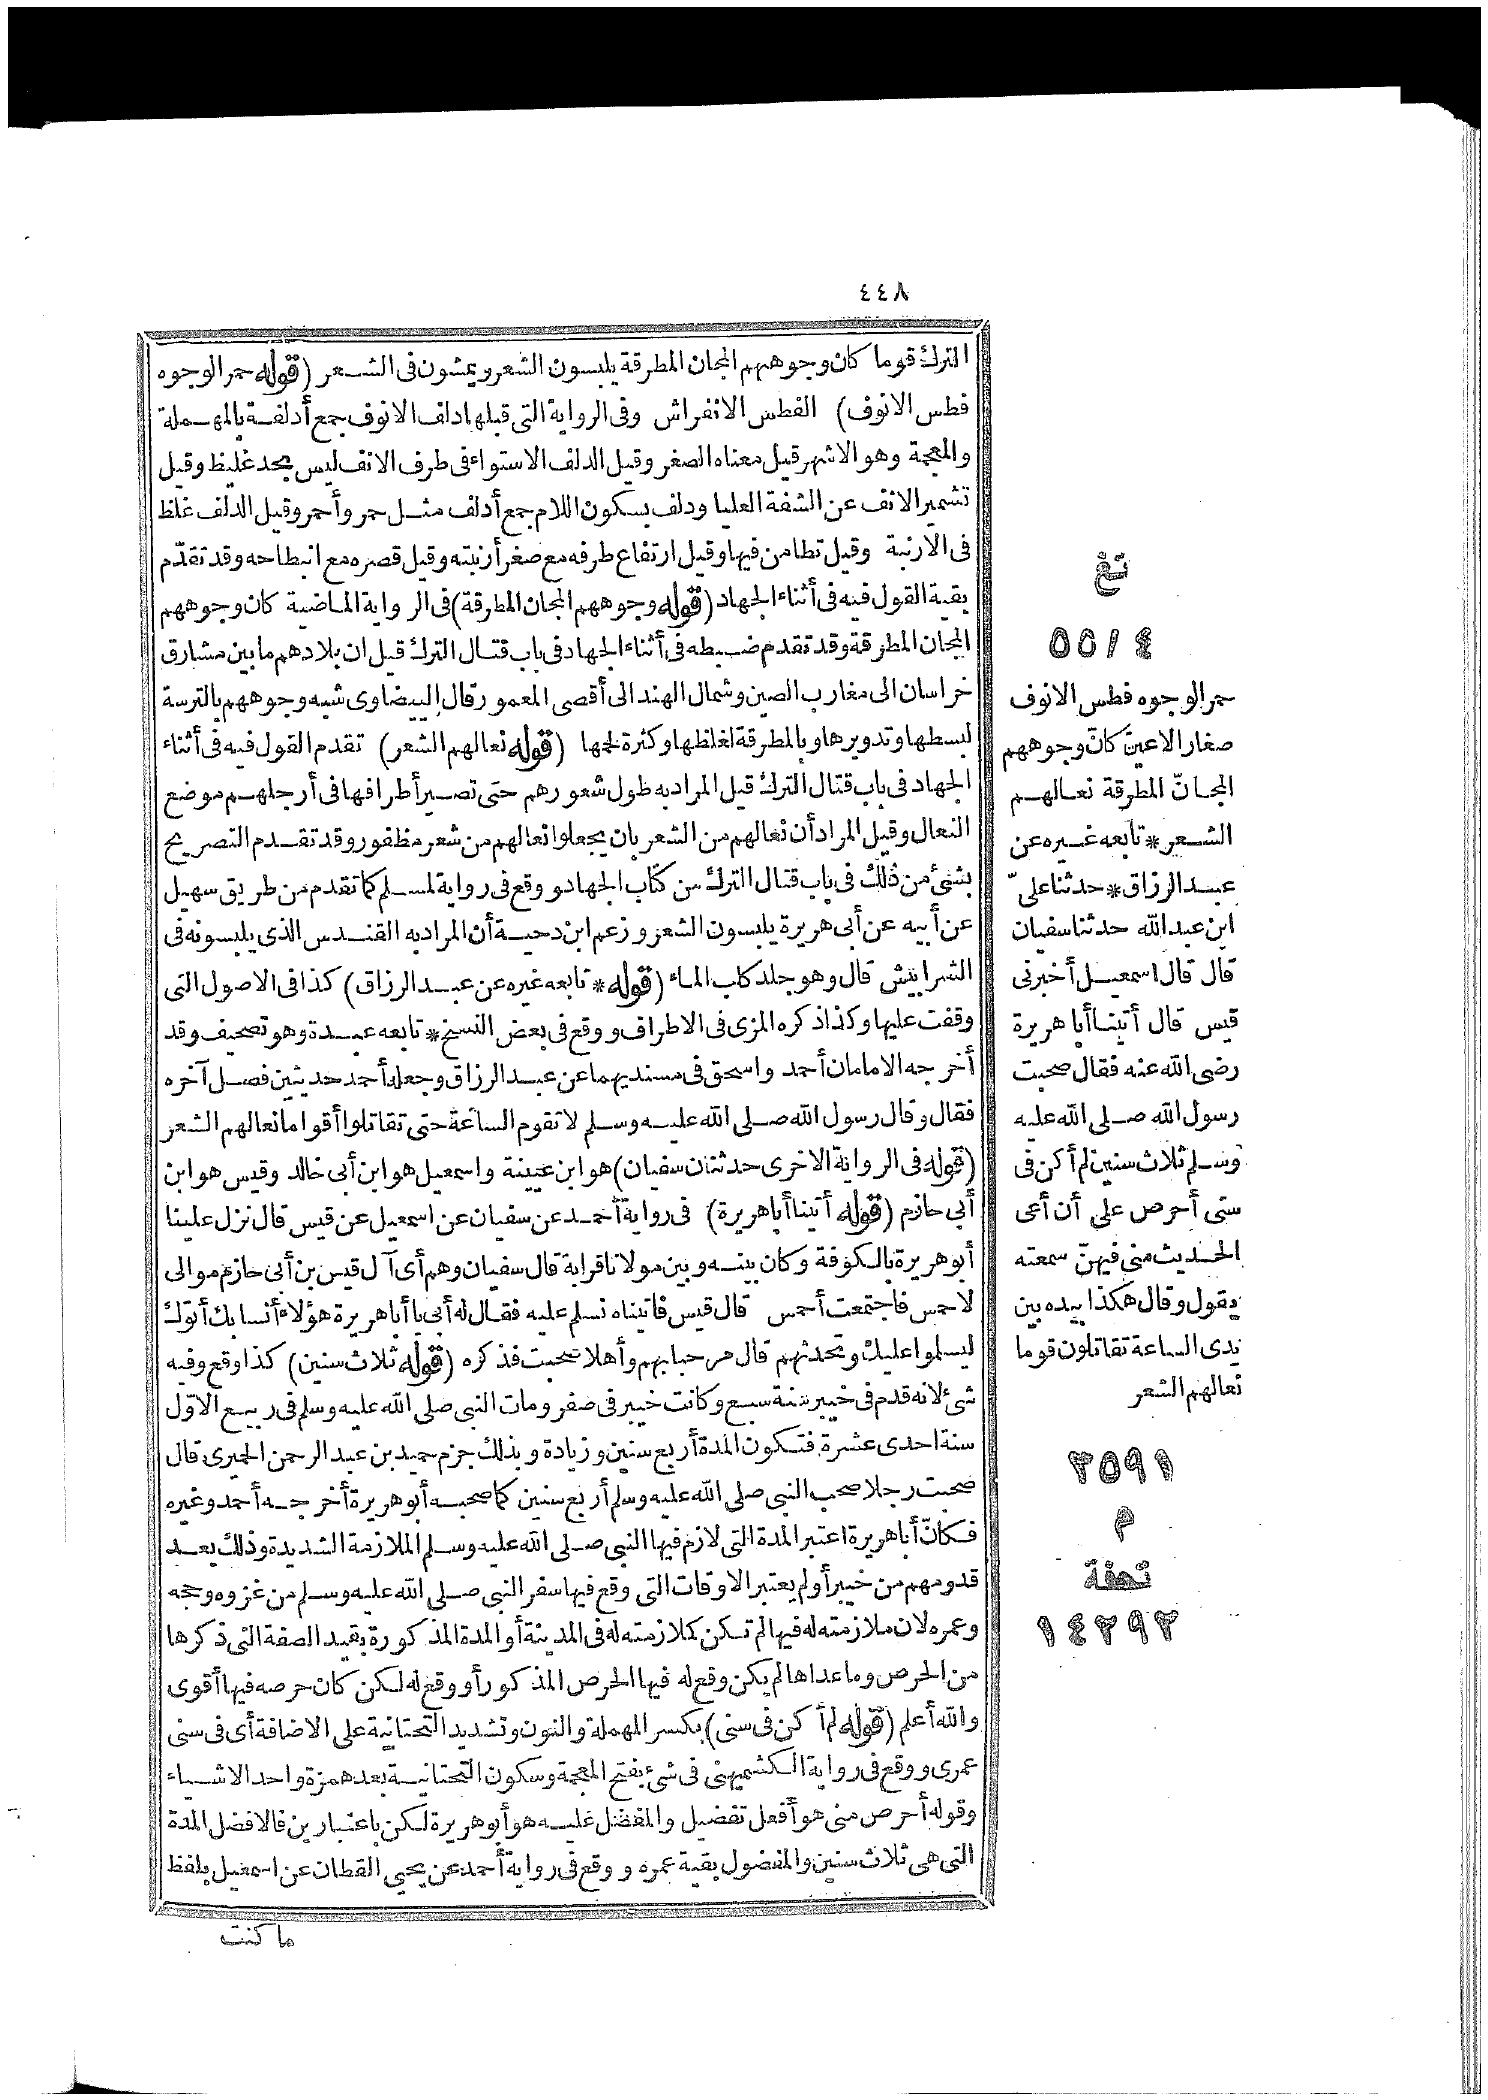 ٤٤٨
الترك قوما كان وجوههم المجان المطرقة يلبسون الشعر ويمشون فى الشعر (قوله حمر الوجوه
فطس الانوف) الفطس الانفراش وفى الرواية التى قبلها دلف الانوف جمع أدلف بالمهملة
والمعجمة وهو الاشهر قيل معناه الصغر وقيل الدلف الاستواء فى طرف الانف ليس بحد غليظ وقيل
تشمير الانف عن الشفة العليا ودلف بسكون اللام جمع أدلف مثل حمر وأحمر وقيل الدلف غلظ
فى الارنبة وقيل تطامن فيها وقيل ارتفاع طرفه مع صغر أرنبته وقيل قصره مع انبطاحه وقد تقدّم
بقية القول فيه فى أثناء الجهاد (قوله وجوههم المجان المطرقة) فى الرواية الماضية كان وجوههم
المجان المطرقة وقد تقدم ضبطه فى أثناء الجهاد فى باب قتال الترك قيل ان بلادهم ما بين مشارق
خراسان الى مغارب الصين وشمال الهند الى أقصى المعمور قال البيضاوى شبه وجوههم بالترسة
لبسطها وتدويرها وبالمطرقة لغلظها وكثرة لحمها (قوله نعالهم الشعر) تقدم القول فيه فى أثناء
الجهاد فى باب قتال الترك قيل المراد به طول شعورهم حتى تصير أطرافها فى أرجلهم موضع
النعال وقيل المراد أن نعالهم من الشعر بان يجعلوا نعالهم من شعر مظفور وقد تقدم التصريح
بشئ من ذلك فى باب قتال الترك من كتاب الجهاد ووقع فى رواية لمسلم كما تقدم من طريق سهيل
عن أبيه عن أبى هريرة يلبسون الشعر وزعم ابن دحية أن المراد به القندس الذى يلبسونه فى
الشرابيش قال وهو جلد كلب الماء (قوله * تابعه غيره عن عبد الرزاق) كذا فى الاصول التى
وقفت عليها وكذا ذكره المزى فى الاطراف ووقع فى بعض النسخ * تابعه عبدة وهو تصحيف وقد
أخرجه الامامان أحمد واسحق فى مسنديهما عن عبد الرزاق وجعله أحمد حديثين فصل آخره
فقال وقال رسول الله صلى الله عليه وسلم لا تقوم الساعة حتى تقاتلوا أقواما نعالهم الشعر
(قوله فى الرواية الاخرى حدثنا سفيان) هو ابن عيينة واسمعيل هو ابن أبى خالد وقيس هو ابن
أبى حازم (قوله أتينا أبا هريرة) فى رواية أحمد عن سفيان عن اسمعيل عن قيس قال نزل علينا
أبو هريرة بالكوفة وكان بينه وبين مولانا قرابة قال سفيان وهم أى آل قيس بن أبى حازم موالى
لاحمس فاجتمعت أحمس قال قيس فاتيناه نسلم عليه فقال له أبى يا أبا هريرة هؤلاء أنسابك أتوك
ليسلموا عليك وتحدثهم قال مرحبا بهم وأهلا صحبت فذكره (قوله ثلاث سنين) كذا وقع وفيه
شئ لانه قدم فى خيبر سنة سبع وكانت خيبر فى صفر ومات النبى صلى الله عليه وسلم فى ربيع الاوّل
سنة احدى عشرة فتكون المدة أربع سنين وزيادة وبذلك جزم حميد بن عبد الرحمن الحميرى قال
صحبت رجلا صحب النبى صلى الله عليه وسلم أربع سنين كما صحبه أبو هريرة أخرجه أحمد وغيره
فكانّ أبا هريرة اعتبر المدة التى لازم فيها النبى صلى الله عليه وسلم الملازمة الشديدة وذلك بعد
قدومهم من خيبر أو لم يعتبر الاوقات التى وقع فيها سفر النبى صلى الله عليه وسلم من غزوه وحجه
وعمره لان ملازمته له فيها لم تكن كملازمته له فى المدينة أو المدة المذكورة بقيد الصفة التى ذكرها
من الحرص وما عداها لم يكن وقع له فيها الحرص المذكور أو وقع له لكن كان حرصه فيها أقوى
والله أعلم (قوله لم أكن فى سنى) بكسر المهملة والنون وتشديد التحتانية على الاضافة أى فى سنى
عمرى ووقع فى رواية الكشميهنى فى شئ بفتح المعجمة وسكون التحتانية بعد همزة واحد الاشياء
وقوله أحرص منى هو أفعل تفضيل والمفضل عليه هو أبو هريرة لكن باعتبارين فالافضل المدة
التى هى ثلاث سنين والمفضول بقية عمره ووقع فى رواية أحمد عن يحيى القطان عن اسمعيل بلفظ
ما كنت
تغ
٥٥/٤
حمر الوجوه فطس الانوف
صغار الاعين كانّ وجوههم
المجانّ المطرقة نعالهم
الشعر * تابعه غيره عن
عبد الرزاق * حدثنا علىّ
ابن عبد الله حدثنا سفيان
قال قال اسمعيل أخبرنى
قيس قال أتينا أبا هريرة
رضى الله عنه فقال صحبت
رسول الله صلى الله عليه
وسلم ثلاث سنين لم أكن فى
سنى أحرص على أن أعى
الحديث منى فيهنّ سمعته
يقول وقال هكذا بيده بين
يدى الساعة تقاتلون قوما
نعالهم الشعر
٣٥٩١
م
تحفة
١٤٢٩٢